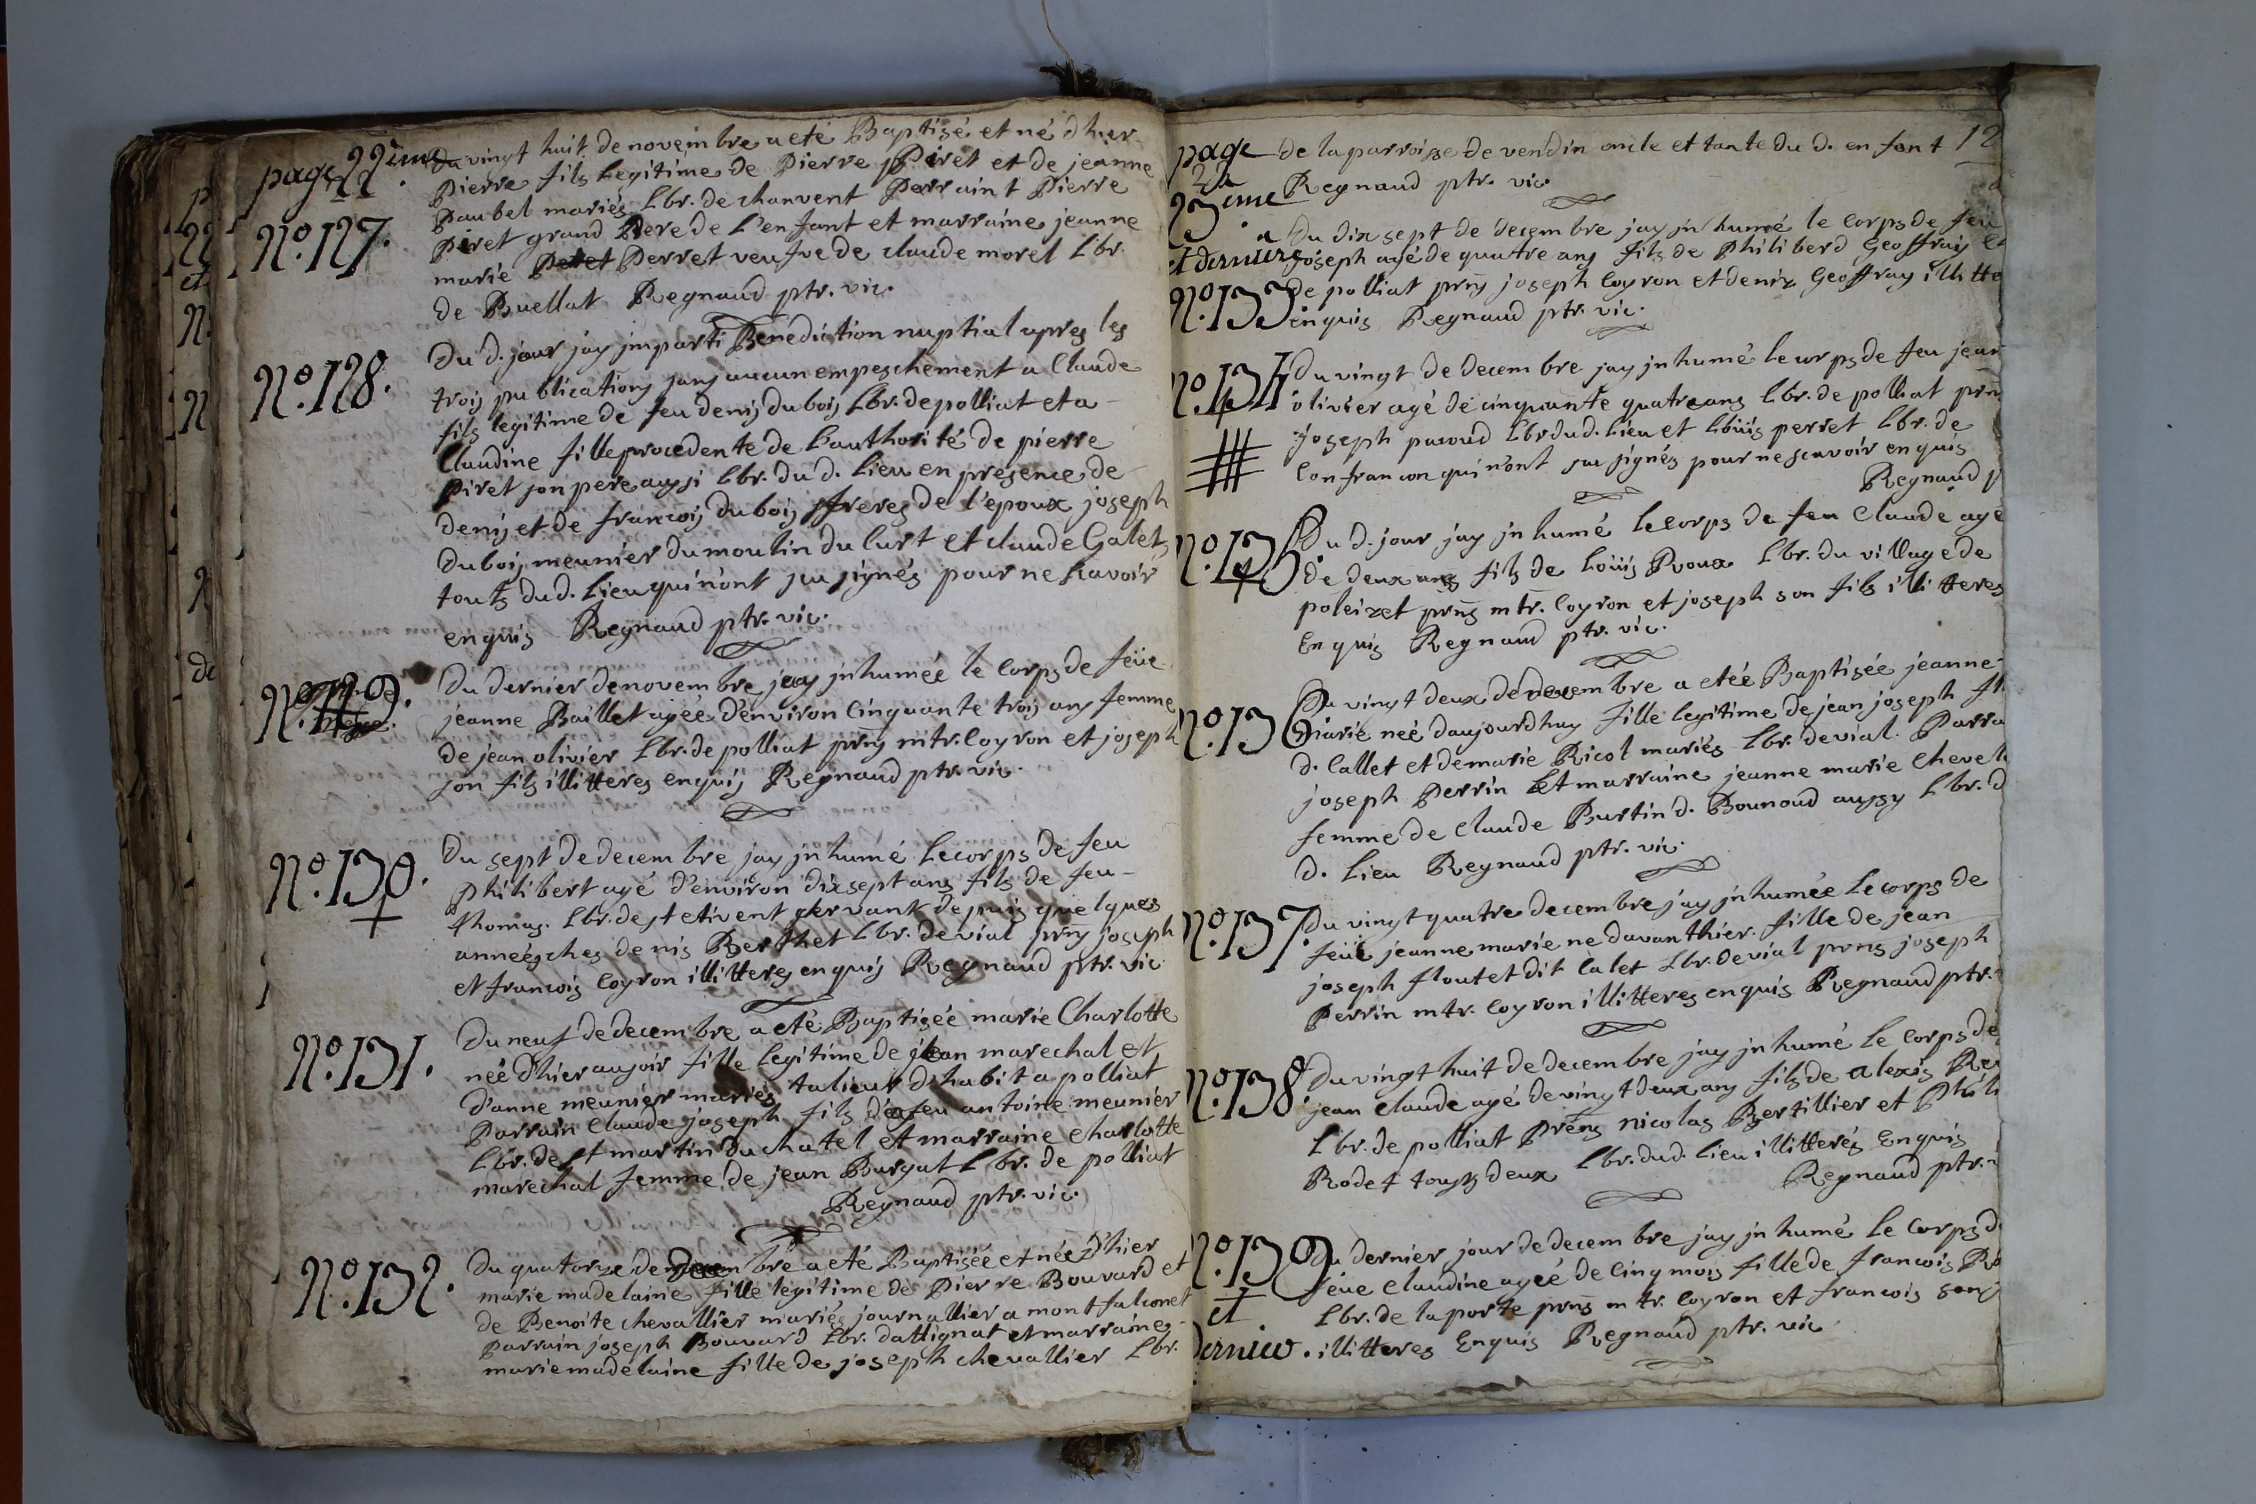 page 22eme
Du vingt huit de novembre a eté Baptisé et né d'hier
Pierre fils legitime de Pierre Piret et de jeanne
Paubel mariés Lbr. de chanvent Parraint Pierre
No. 127.
Piret grand Pere de l'enfant et marraine jeanne
marie Perret veufve de claude morel Lbr.
de Buellat Regnaud ptr. vic.
No. 128.
Du d. jour jay jmparti Benediction nuptial apres les
trois publications sans aucun empeschement a Claude
fils legitime de feu denis dubois Lbr. de polliat et a
Claudine fille procedente de l'authorité de pierre
Piret son pere aussi Lbr. du d. lieu en presence de
denis et de francois dubois freres de l'epoux joseph
dubois meunier du moulin du curt et claude Galet
touts dud. Lieu qui n'ont sçu signés pour ne scavoir
enquis Regnaud ptr. vic.
No. 129.
Du dernier de novembre jay jnhumée le corps de feüe
jeanne Baillet agée d'environ cinquante trois ans femme
de jean olivier Lbr. de polliat prns mtr. Coyron et joseph
son fils illitteres enquis Regnaud ptr. vic.
No. 130.
Du sept de decembre jay jnhumé le corps de feu
philibert agé d'environ dix sept ans fils de feu
thomas. Lbr. de st etivent servant depuis quelques
années ches denis Berthet Lbr. de vial prns joseph
et francois Coyron illitteres enquis Regnaud ptr. vic
No. 131.
Du neuf de decembre a eté Baptisée marie Charlotte
née d'hier au soir fille legitime de jean marechal et
d'anne meunier mariés talieur d'habit a polliat
Parrain Claude joseph fils de feu antoine meunier
Lbr. de st martin du chatel et marraine charlotte
marechal femme de jean Burgat Lbr. de polliat
Regnaud ptr. vic.
No. 132.
Du quatorze de Decembre a eté Baptisée et née d'hier
marie madelaine fille legitime de Pierre Bouvard et
de Benoite chevallier mariés journallier a montfalconet
Parrain joseph Bouvard Lbr. dattignat et marraine
marie madelaine fille de joseph chevallier Lbr.
page 23eme et derniere
de la parroisse de vendin oncle et tante du d. enfant 12
Regnaud ptr. vic.
No. 133.
Du dix sept de decembre jay jnhumé le corps de feu
joseph agé de quatre ans fils de Philiberd Geoffray
de polliat prns joseph Coyron et denix Geoffray illitte
enquis Regnaud ptr. vic.
No. 134
Du vingt de decembre jay jnhumé le corps de feu jean
olivier agé de cinquante quatre ans Lbr. de polliat prns
joseph pacoud Lbr dud. Lieu et Loüis perret Lbr. de
Confrancon qui n'ont sçu signés pour ne scavoir enquis
Regnaud p
No. 135
Du d. jour jay jnhumé le corps de feu Claude agé
de deux ans fils de Loüis Roux Lbr. du village de
poleizet prns mtr. Coyron et joseph son fils illitteres
Enquis Regnaud ptr. vic.
No. 136
Du vingt deux de decembre a etée Baptisée jeanne
Marie neé daujourdhuy fille legitime de jean joseph fl
d. Callet et de marie Ricol mariés Lbr. de vial. Parra
joseph Perrin Et marraine jeanne marie Chevel
femme de Claude Burtin d. Bounoud aussy Lbr. d
d. Lieu Regnaud ptr. vic.
No. 137.
Du vingt quatre decembre jay jnhumée le corps de
feüe jeanne marie ne davanthier. fille de jean
joseph floutet dit Calet Lbr. de vial prns joseph
Perrin mtr. Coyron illitteres enquis Regnaud ptr.
No. 138.
Du vingt huit de decembre jay jnhumé le corps de
jean claude agé de vingt deux ans fils de alexis
Lbr. de polliat Prens nicolas Bertillier et Phili
Rodet touts deux Lbr. dud. Lieu illitterés Enquis
Regnaud ptr.
No. 139
et dernier.
Du dernier jour de decembre jay jnhumé le Corps d
feüe Claudine ageé de cinq mois fille de francois
Lbr. de la porte prns mtr. Coyron et francois
illitteres Enquis Regnaud ptr. vic